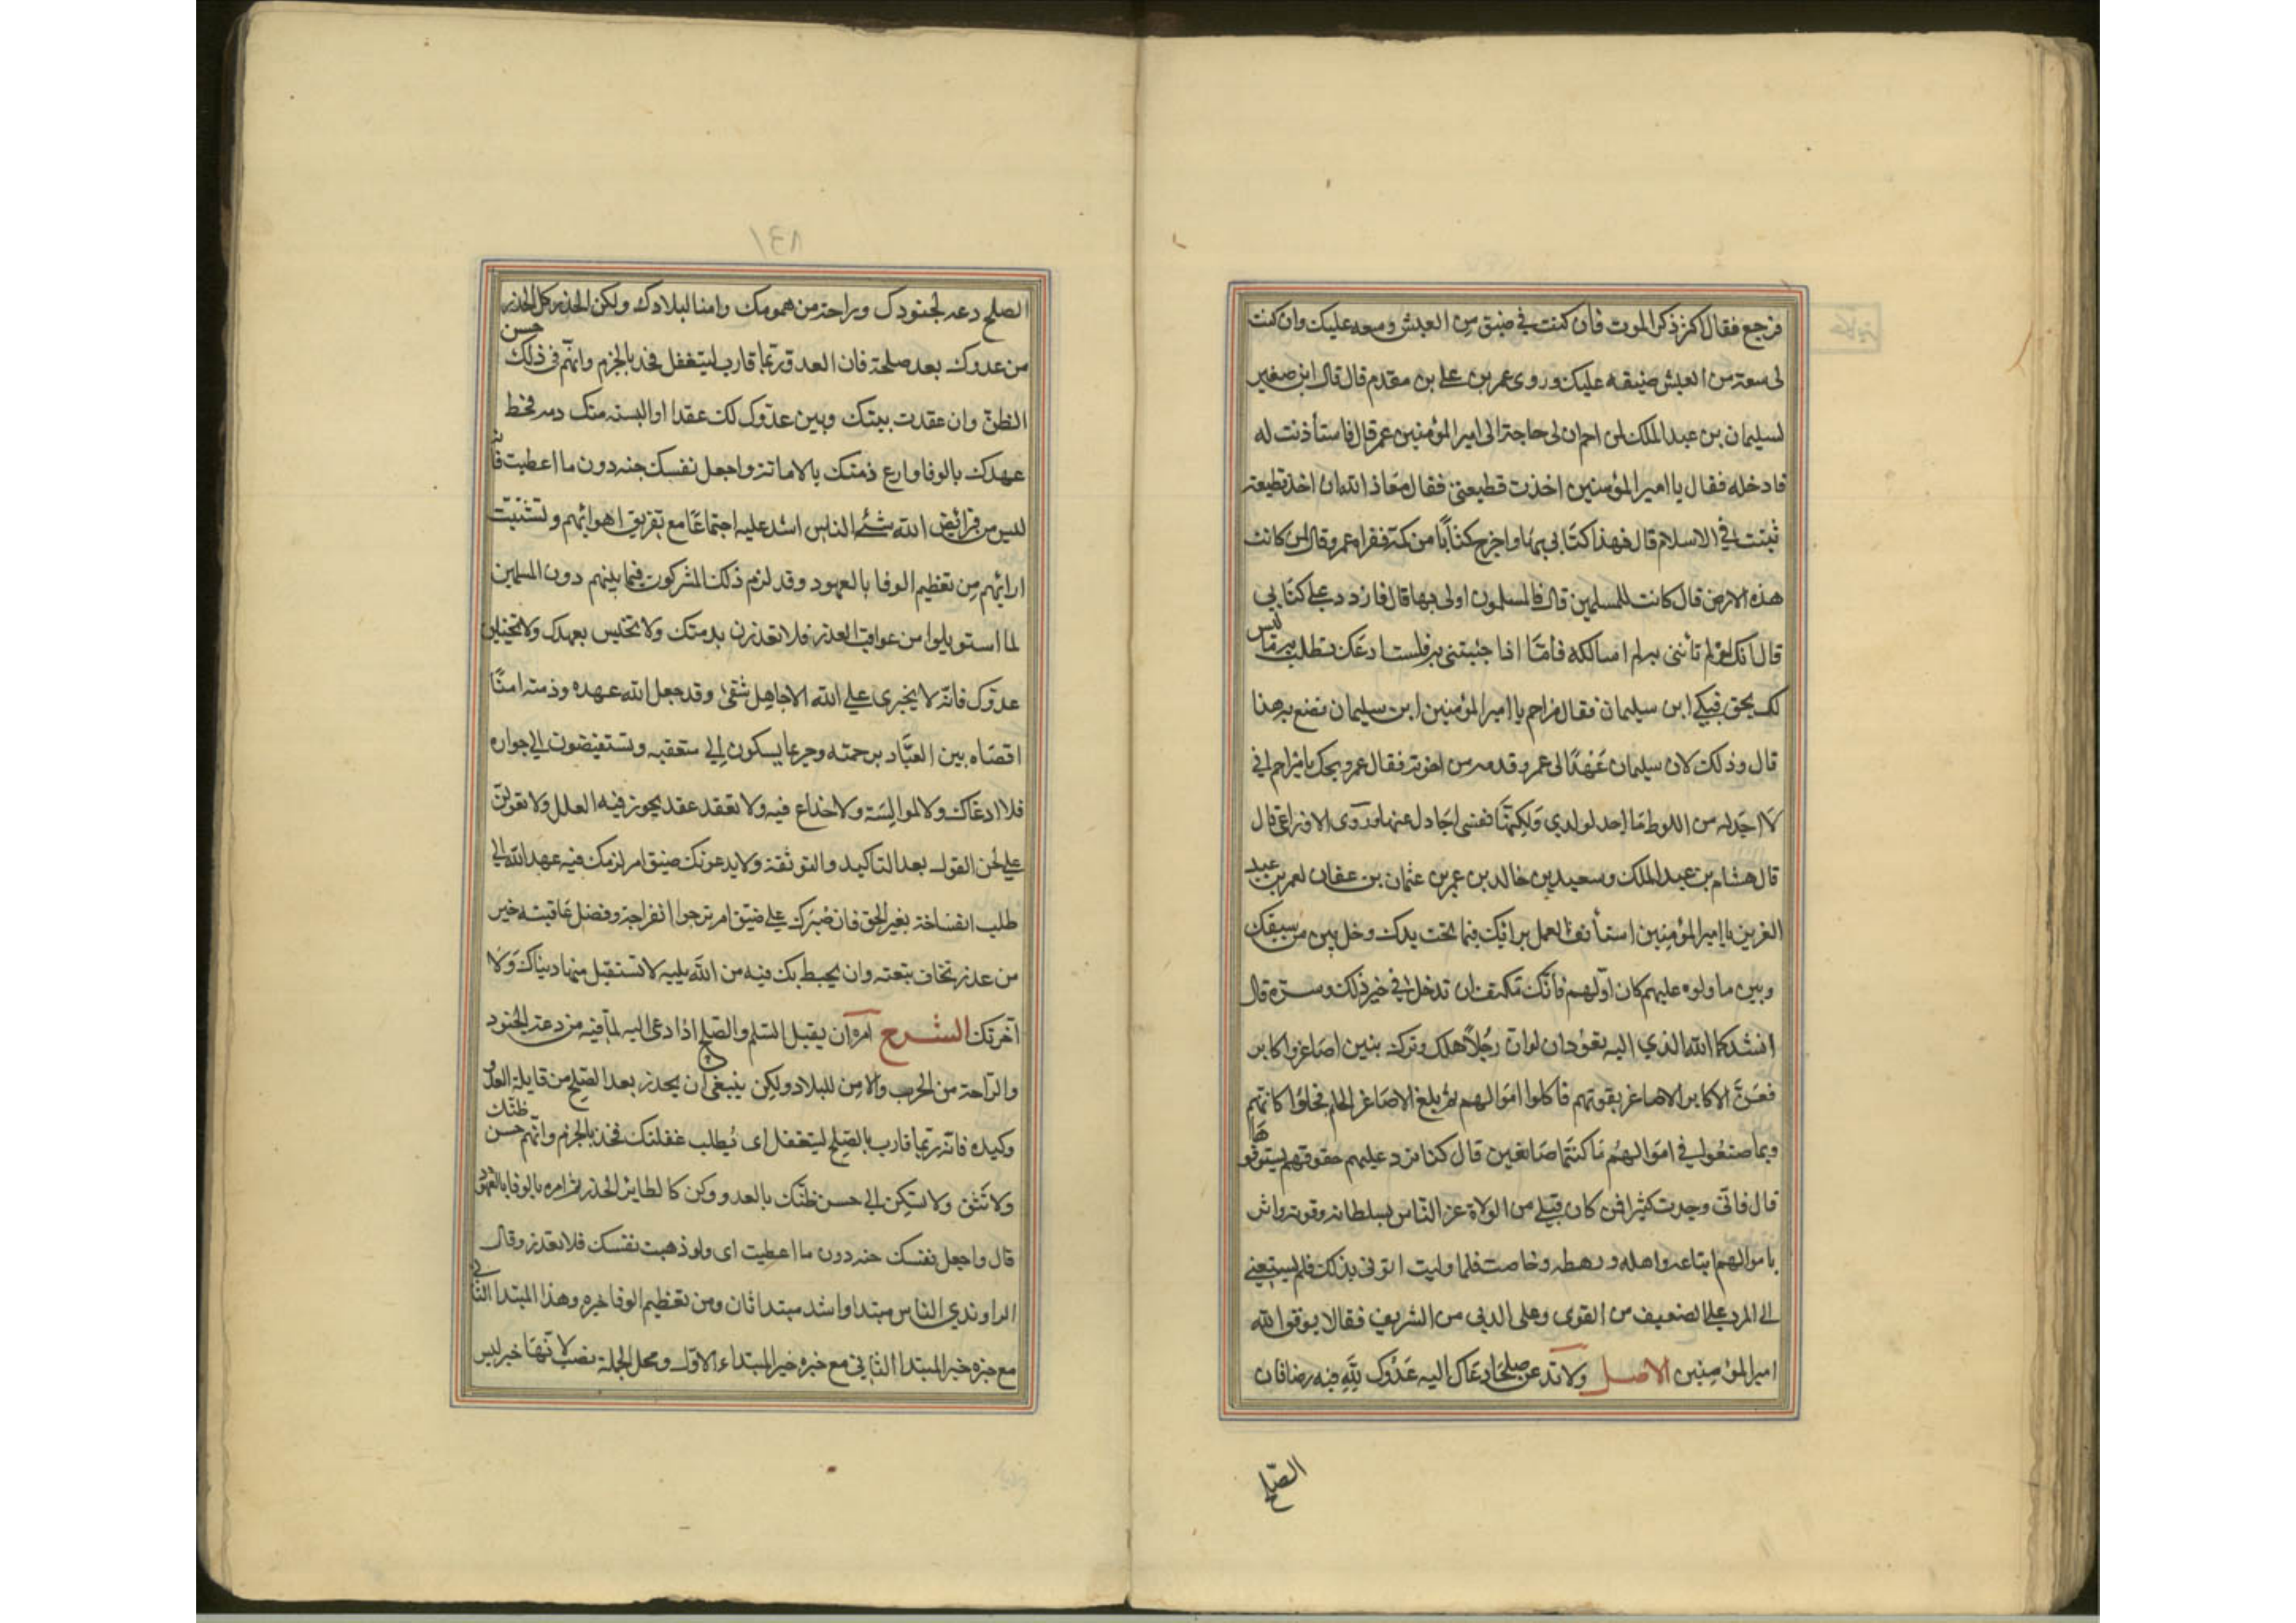 فرجع فقال اكثر ذكر الموت فان كنت في ضيق من العيش وسعه عليك وان كنت
لى سعة من العيش ضيقه عليك وروى عمر بن على بن مقدم قال قال ابن صغير
لسليمان بن عبد الملك لمزاحم ان لى حاجة الى امير المؤمنين عمر قال فاستأذنت له
فادخله فقال يا امير المؤمنين اخذت قطيعتى فقال معاذ الله ان اخذ قطيعة
ثبتت في الاسلام قال فهذا كتابى بها واخرج كتابا من كمه فقراه عمر وقال لمن كانت
هذه الارض قال كانت للمسلمين قال فالمسلمون اولى بها قال فاردد على كتابى
قال انك لو لم تأتنى به لم اسالكه فأما اذا جئتنى به فلست ادعك تطلب به ما ليس
لك بحق فبكى ابن سليمان فقال مزاحم يا امير المؤمنين ابن سليمان تصنع به هذا
قال وذلك لان سليمان عهد الى عمر وقدمه من اخوته فقال عمر ويحك يا مزاحم انى
لا اجد له من اللوط ما اجد لولدي ولكنها نفسى اجادل عنها وروى الاوزاعى قال
قال هشام بن عبد الملك وسعيد بن خالد بن عمر بن عثمان بن عفان لعمر بن عبد
العزيز يا امير المؤمنين استأنف العمل برائيك فيما تحت يدك وخل بين من سبقك
وبين ما ولوه عليهم كان اولهم فانك مكتف ان تدخل في خير ذلك وسره قال
انشدكما الله الذي اليه تعودان لو ان رجلا هلك وترك بنين اصاغر واكابر
فعز الاكابر الاصاغر بقوتهم فاكلوا اموالهم ثم بلغ الاصاغر الحلم فجاؤا كما بهم
وبما صنعوا في اموالهم ما كنتما صانعين قال كنا نرد عليهم حقوقهم يستوفوها
قال فانى وجدت كثيرا فمن كان قبلى من الولاة عز الناس بسلطانه وقوته واثر
باموالهم اتباعه واهله ورهطه وخاصته فلما وليت اتونى بذلك فلم يسعنى
الى الرد على الضعيف من القوى وعلى الدنى من الشريف فقالا يوفق الله
امير المؤمنين الاصل ولا تدعن صلحا دعاك اليه عدوك لله فيه رضا فان
الصلح
١٤٨
الصلح دعه لجنودك وراحة من همومك وامنا لبلادك ولكن الحذر كل الحذر
من عدوك بعد صلحة فان العدو ربما قارب ليتغفل فخذ بالحزم واتهم فى ذلك حسن
الظن وان عقدت بينك وبين عدوك لك عقدا او البسته منك دمه فحط
عهدك بالوفا وارع ذمتك بالامانة واجعل نفسك جنه دون ما اعطيت فانه
ليس من فرائض الله شئ الناس اشد عليه اجتماعا مع تفريق اهوائهم وتشتيت
ارائهم من تعظيم الوفا بالعهود وقد لزم ذلك المشركون فيما بينهم دون المسلمين
لما استوبلوا من عواقب العذر فلا تعذرن بدمتك ولا تخيس بعهدك ولا تختلن
عدوك فانه لا يجترى على الله الا جاهل شقى وقد جعل الله عهده وذمته امنا
افضاه بين العباد برحمته وحرعا يسكون الى منعقبه وتستفيضون الى جواره
فلا ادغال ولا لموالسة ولا خداع فيه ولا تعقد عقد يجوز فيه العلل ولا تعولن
على لحن القول بعد التاكيد والتوثقة ولا يدعونك ضيق امر لزمك فيه عهد الله الى
طلب انفساخه بغير الحق فان صبرك على ضيق امر ترجوا انفراجه وفضل عاقبته خير
من عذر تخاف تبعته وان يحيط بك فيه من الله طلبه لا تستقيل منها دنياك ولا
آخرتك الشرح امره ان يقبل السلم والصلح اذا دعى اليه لما فيه من دعة الجنود
والراحة من الحرب والامن للبلاد ولكن ينبغى ان يحذر بعد الصلح من قايلة العدو
وكيده فانه ربما قارب بالصلح ليتغفل اى يطلب غفلتك فخذ بالحزم واتهم حسن ظنك
ولا تثق ولا تسكن الى حسن ظنك بالعدو وكن كالطاير الحذر ثم امره بالوفا بالعهود
قال واجعل نفسك جنه دون ما اعطيت اى ولو ذهبت نفسك فلا تغدر وقال
الراوندي الناس مبتدا واشد مبتدا ثان ومن تعظيم الوفا خبره وهذا المبتدا الثانى
مع خبره خبر المبتدا الثانى مع خبره خبر المبتداء الاول ومحل الجملة نصب لانها خبر ليس